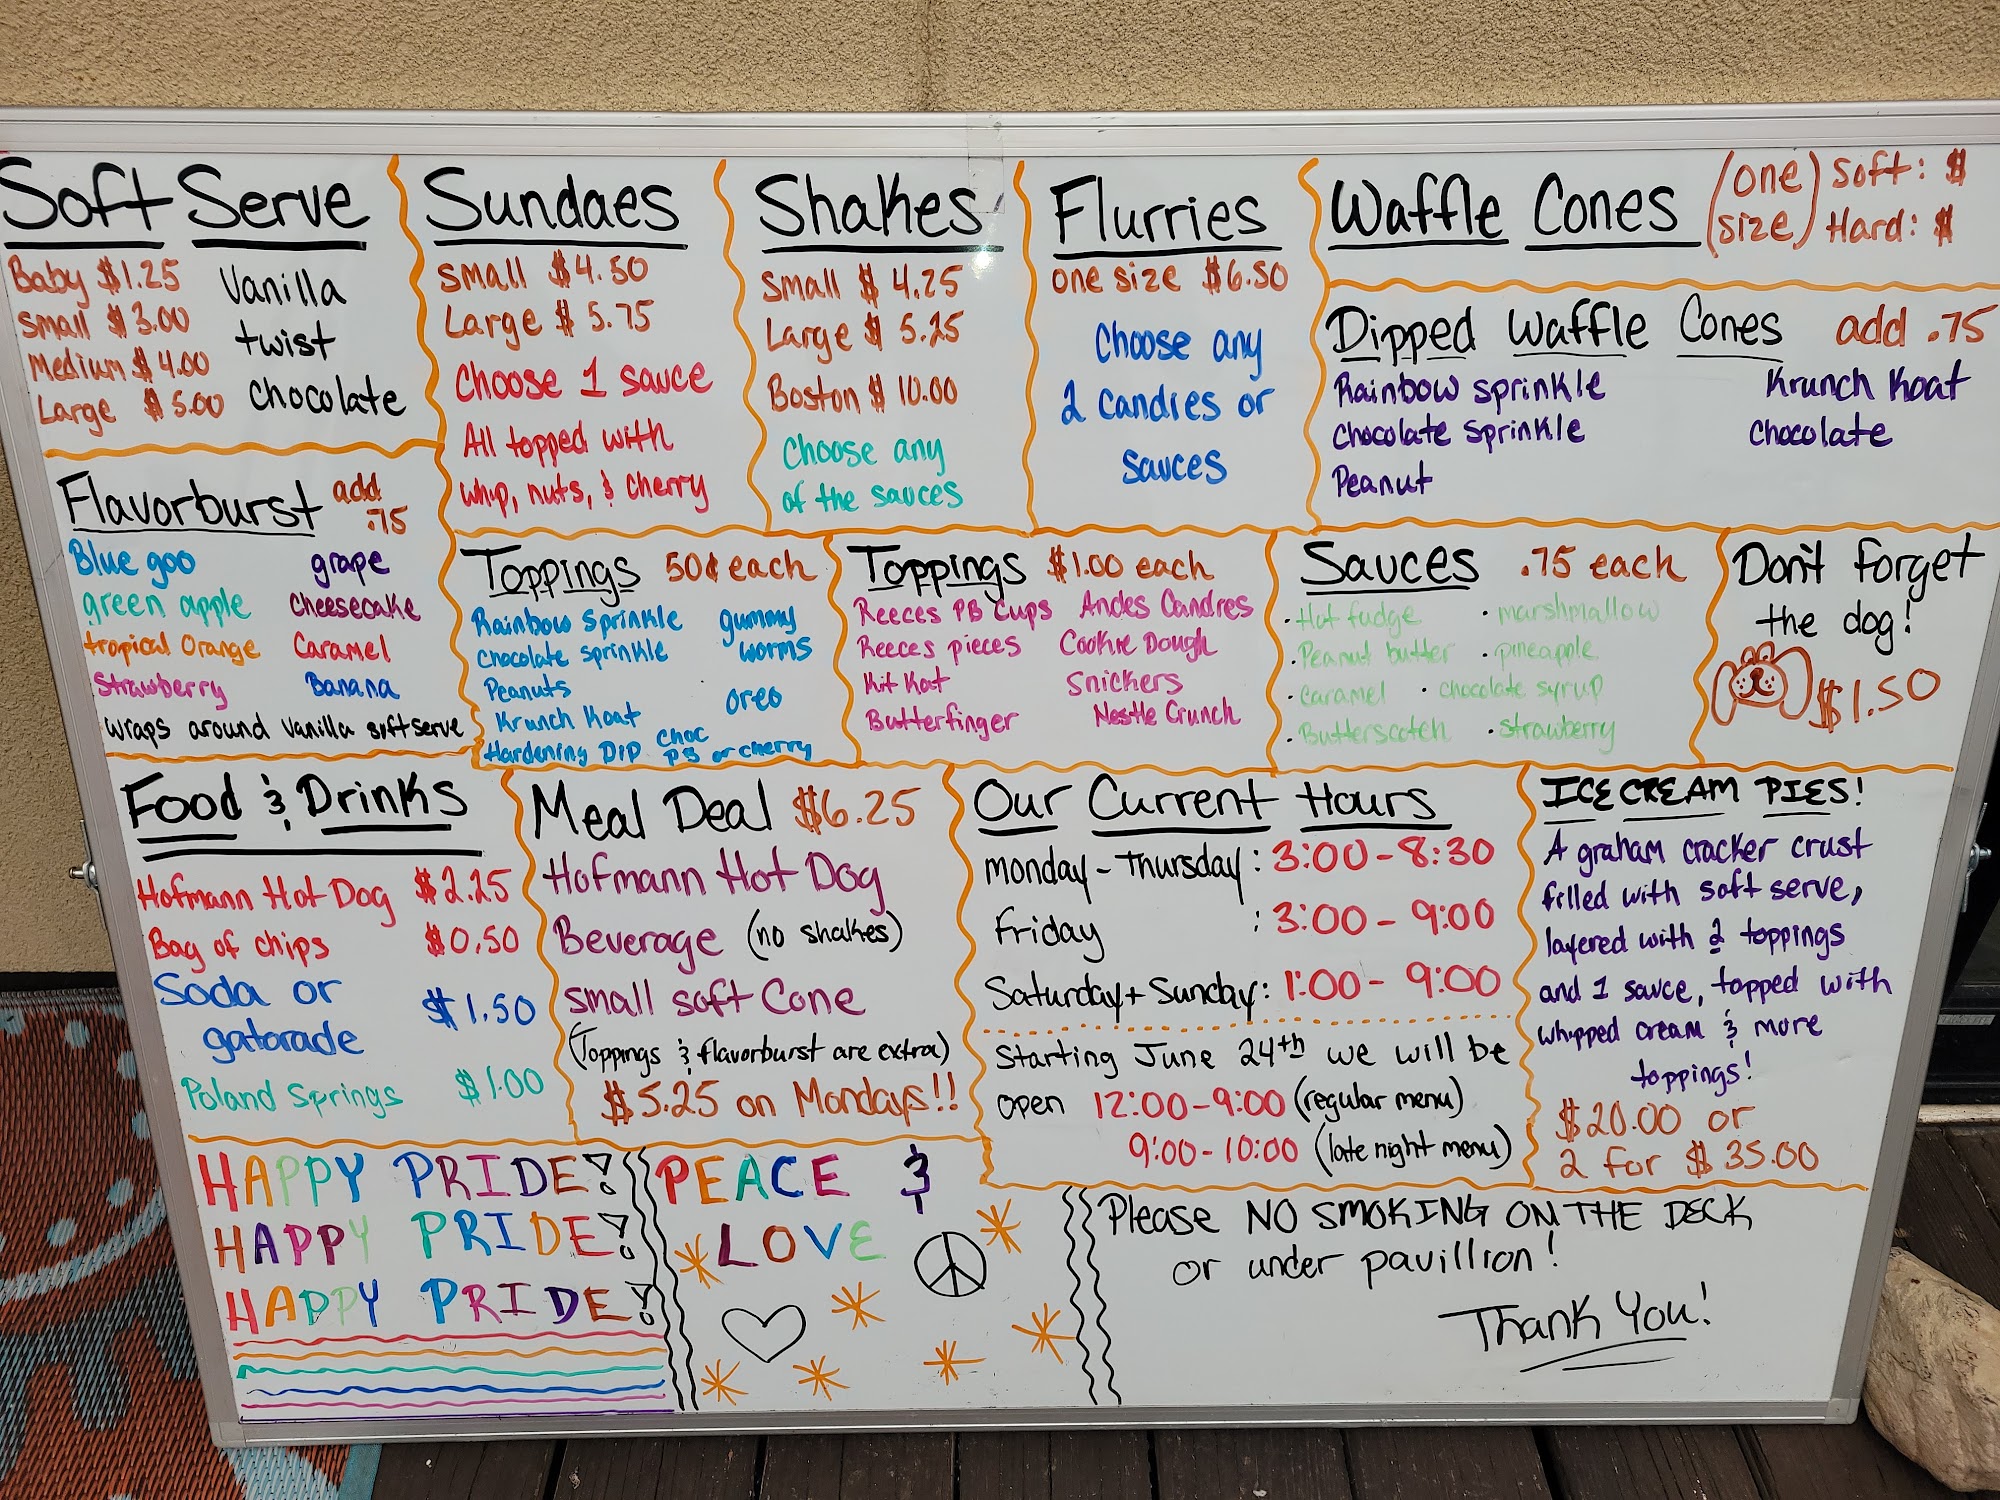 Soft Serve
Baby $1.25
Small $3.00
Medium $4.00
Large $5.00
Vanilla
twist
chocolate
Sundaes
small $4.50
Large $5.75
Choose 1 sauce
All topped with
whip, nuts, & cherry
Shakes
Small $4.25
Large $5.25
Boston $10.00
Choose any
of the sauces
Flurries
one size $6.50
Choose any
2 candies or
sauces
Waffle Cones (one size) Soft: $
Hard: $
Dipped Waffle Cones add .75
Rainbow sprinkle
Chocolate sprinkle
Peanut
Krunch Koat
Chocolate
Flavorburst add .75
Blue goo
green apple
tropical Orange
Strawberry
grape
Cheesecake
Caramel
Banana
wraps around vanilla soft serve
Toppings 50¢ each
Rainbow Sprinkle
Chocolate sprinkle
Peanuts
Krunch Koat
Hardening Dip choc PB or cherry
gummy
worms
oreo
Toppings $1.00 each
Reeces PB Cups
Reeces pieces
Kit Kat
Butterfinger
Andes Candies
Cookie Dough
Snickers
Nestle Crunch
Sauces .75 each
· Hot fudge
· Peanut butter
· Caramel
· Butterscotch
· marshmallow
· pineapple
· chocolate syrup
· strawberry
Don't forget
the dog!
$1.50
Food & Drinks
Hofmann Hot Dog $2.25
Bag of chips $0.50
Soda or
gatorade $1.50
Poland Springs $1.00
Meal Deal $6.25
Hofmann Hot Dog
Beverage (no shakes)
small soft Cone
(Toppings & flavorburst are extra)
$5.25 on Mondays!!
Our Current Hours
Monday - Thursday: 3:00 - 8:30
Friday : 3:00 - 9:00
Saturday + Sunday: 1:00 - 9:00
Starting June 24th we will be
open 12:00-9:00 (regular menu)
9:00-10:00 (late night menu)
ICE CREAM PIES!
A graham cracker crust
filled with soft serve,
layered with 2 toppings
and 1 sauce, topped with
whipped cream & more
toppings!
$20.00 or
2 for $35.00
HAPPY PRIDE!
HAPPY PRIDE!
HAPPY PRIDE!
PEACE &
LOVE
Please NO SMOKING ON THE DECK
or under pavillion!
Thank You!